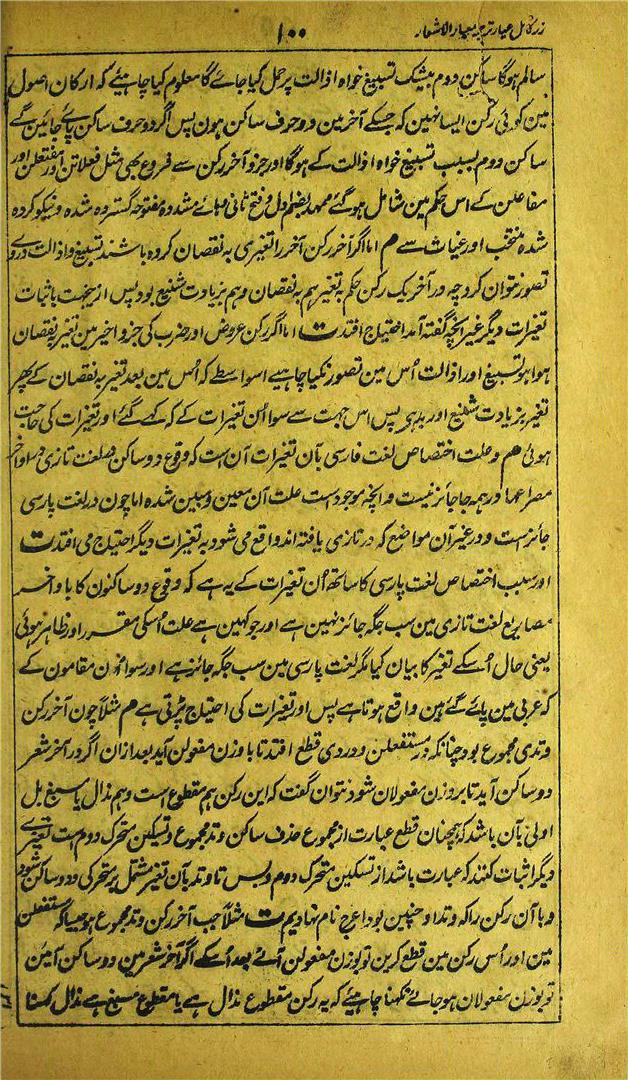 زر کامل عیار ترجمہ معیار الاشعار
۱۰۰
سالم ہوگا ساکن دوم بیشک تسبیغ خواہ اذالت پر حمل کیا جائے گا معلوم کیا چاہیئے کہ ارکان اصول
مین کوئی رکن ایسا نہین کہ جسکے آخر مین دو حرف ساکن ہون پس اگر دو حرف ساکن پائے جائین گے
ساکن دوم بسبب تسبیغ خواہ اذالت کے ہوگا اور جزو آخر رکن سے فروع بھی مثل فعلاتن اور مفتعلن اور
مفاعلن کے اس حکم مین شامل ہو گئے ممہد بضم اول و فتح ثانی و ہائے مشدوہ مفتوحہ گستردہ شدہ و نیکو کردہ
شدہ منتخب اور غیاث سے م اما اگر آخر رکن آخر را تغیری بہ نقصان کردہ باشند تسبیغ و اذالت در وے
تصور نتوان کرد چہ در آخر یک رکن حکم بہ تغیر ہم بہ نقصان و ہم بزیادت شنیع بود پس ازینجہت باثبات
تغیرات دیگر غیر انچہ گفتہ آمد احتیاج افتد ت اما اگر رکن عروض اور ضرب کی جزو اخیر مین تغیر بہ نقصان
ہوا ہو تسبیغ اور اذالت اُس مین تصور نکیا چاہیے اسواسطے کہ اُس مین بعد تغیر بہ نقصان کے پھر
تغیر بزیادت شنیع اور بد ہی پس اس جہت سے سوا اُن تغیرات کے کہ کہے گئے اور تغیرات کی حاجت
ہوئی م و علت اختصاص لغت فارسی بآن تغیرات آن است کہ وقوع دو ساکن در لغت تازی در اواخر
مصراعہا در ہمہ جا جائز نیست و انچہ موجود است علت آن معین و مبین شدہ اما چون در لغت پارسی
جائز است و در غیر آن مواضع کہ در تازی یافتہ اند واقع می شود بہ تغیرات دیگر احتیاج می افتد ت
اور سبب اختصاص لغت پارسی کا ساتھ اُن تغیرات کے یہ ہے کہ وقوع دو ساکنون کا با واخر
مصاریع لغت تازی مین سب جگہ جائز نہین ہے اور جو کہین ہے علت اُسکی مقرر اور ظاہر ہوئی
یعنی حال اُسکے تغیر کا بیان کیا مگر لغت پارسی مین سب جگہ جائز ہے اور سوا اُون مقامون کے
کہ عربی مین پائے گئے ہین واقع ہوتا ہے پس اور تغیرات کی احتیاج پڑتی ہے م مثلاً چون آخر رکن
وتدی مجموع بود چنانکہ در مستفعلن و در دی قطع افتد تا با وزن مفعولن آید بعد ازان اگر در آخر شعر
دو ساکن آید تا بر وزن مفعولان شود نتوان گفت کہ این رکن ہم مقطوع است و ہم مذال یا مسبغ بل
اولی بآن باشد کہ ہمچنان قطع عبارت از مجموع حذف ساکن وتد مجموع و تسکین متحرک دوم ہست تغیرے
دیگر اثبات کنند کہ عبارت باشد از تسکین متحرک دوم و بس تا وتد بآن تغیر مشتمل بر متحرکی و دو ساکن شود
و با آن رکن را کہ وتد او چنین بود اعرج نام نہادیم ت مثلاً جب آخر رکن وتد مجموع ہو جیسا کہ مستفعلن
مین اور اُس رکن مین قطع کرین تو بوزن مفعولن آئے بعد اُسکے اگر آخر شعر مین دو ساکن آئین
تو بوزن مفعولان ہو جائے نکہنا چاہیئے کہ یہ رکن مقطوع مذال ہے یا مقطوع مسبغ ہے مذال کہنا